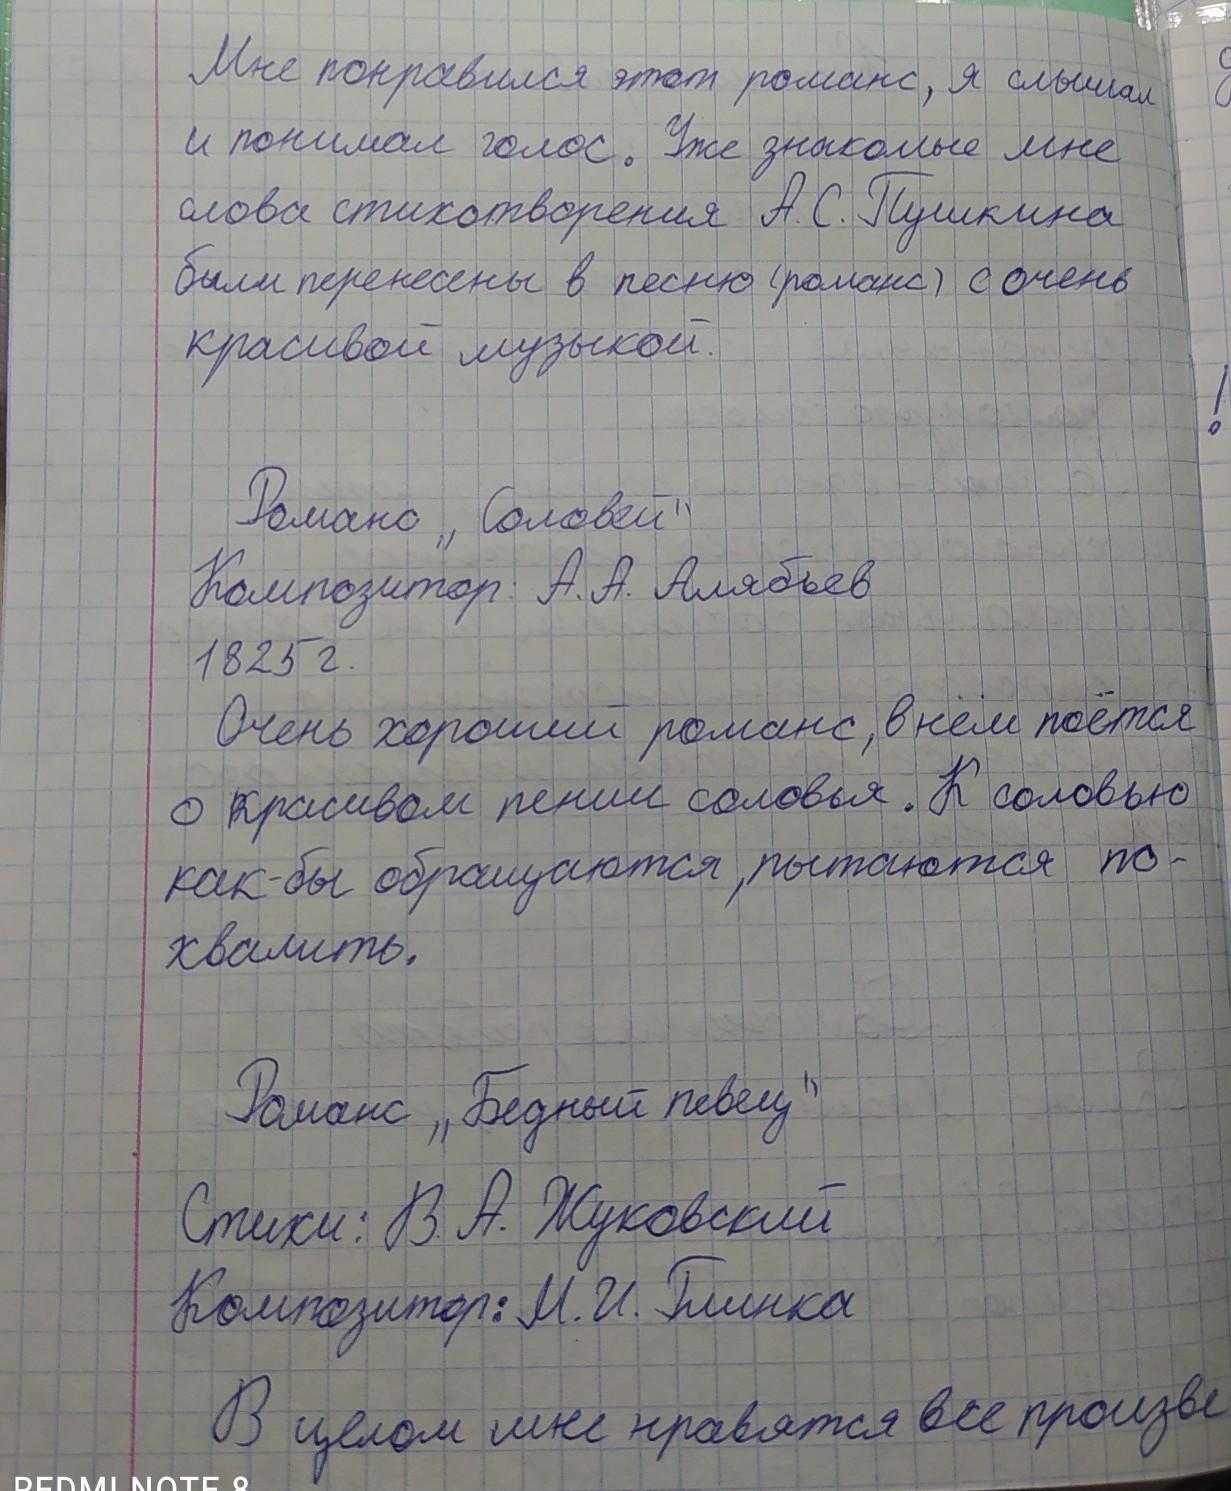 Мне понравился этот романс, я слышал
и понимал голос. Уже знакомые мне
слова стихотворения А.С. Пушкина
были перенесены в песню (романс) с очень
красивой музыкой.
!
Романс „Соловей"
Композитор: А.А. Алябьев
1825 г.
Очень хороший романс, в нём поётся
о красивом пении соловья. К соловью
как-бы обращаются, пытаются по-
хвалить.
Романс „Бедный певец"
Стихи: В.А. Жуковский
Композитор: М.И. Глинка
В целом мне нравятся все произве
REDMI NOTE 8